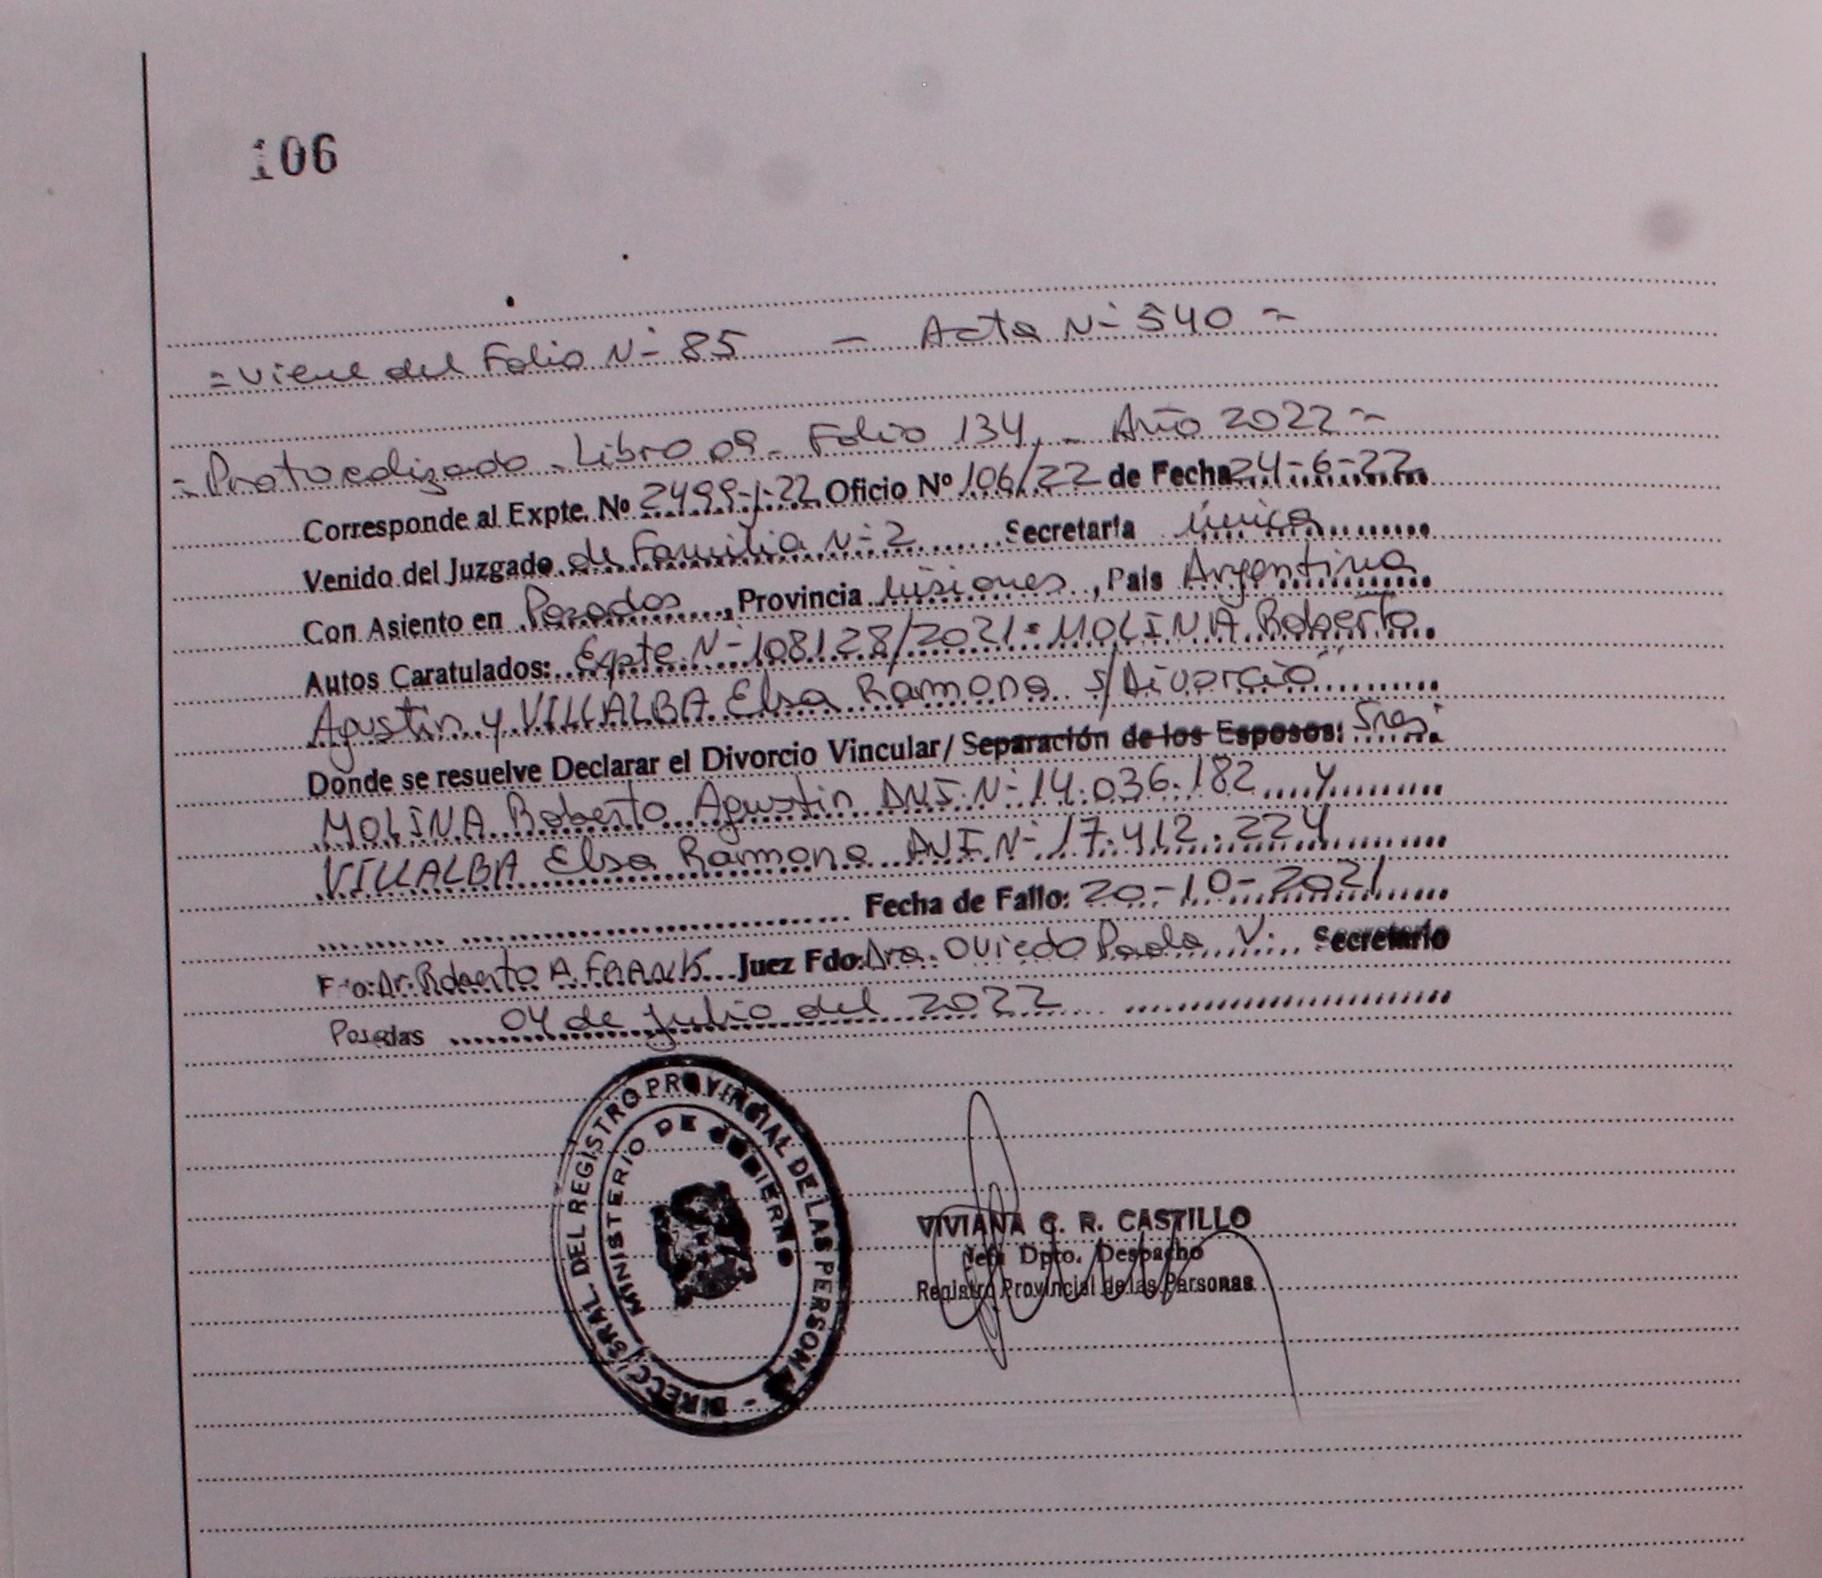 106
= Viene del Folio N- 85 - Acta N- 540 =
= Protocolizado - Libro 09 - Folio 134, - Año 2022 =
Corresponde al Expte. Nº 2499-J-22 Oficio Nº 106/22 de Fecha 24-6-22
Venido del Juzgado de Familia N- 2 Secretaría única
Con Asiento en Posadas, Provincia Misiones, País Argentina
Autos Caratulados: Expte. N- 108128/2021 = MOLINA Roberto
Agustin y VILLALBA Elsa Ramona s/Divorcio"
Donde se resuelve Declarar el Divorcio Vincular/ Separación de los Esposos: Sres:
MOLINA Roberto Agustin DNI. N- 14.036.182 y
VILLALBA Elsa Ramona DNI. N- 17.412.224
Fecha de Fallo: 20-10-2021
F o: Dr. Roberto A. FRANK Juez Fdo: Dra. Oviedo Paola V. Secretario
Posadas 04 de julio del 2022
DIRECC GRAL. DEL REGISTRO PROVINCIAL DE LAS PERSONAS
MINISTERIO DE GOBIERNO
VIVIANA G. R. CASTILLO
Jefa Dpto. Despacho
Registro Provincial de las Personas